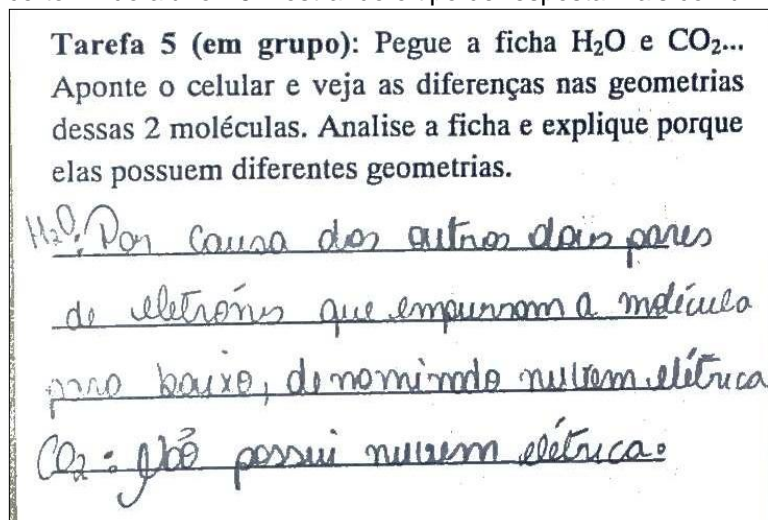 Tarefa 5 (em grupo): Pegue a ficha H₂O e CO₂...
Aponte o celular e veja as diferenças nas geometrias
dessas 2 moléculas. Analise a ficha e explique porque
elas possuem diferentes geometrias.
H₂O: Por causa dos outros dois pares
de eletrons que empurram a molécula
para baixo, denominado nuvem elétrica
CO₂: Não possui nuvem elétrica.